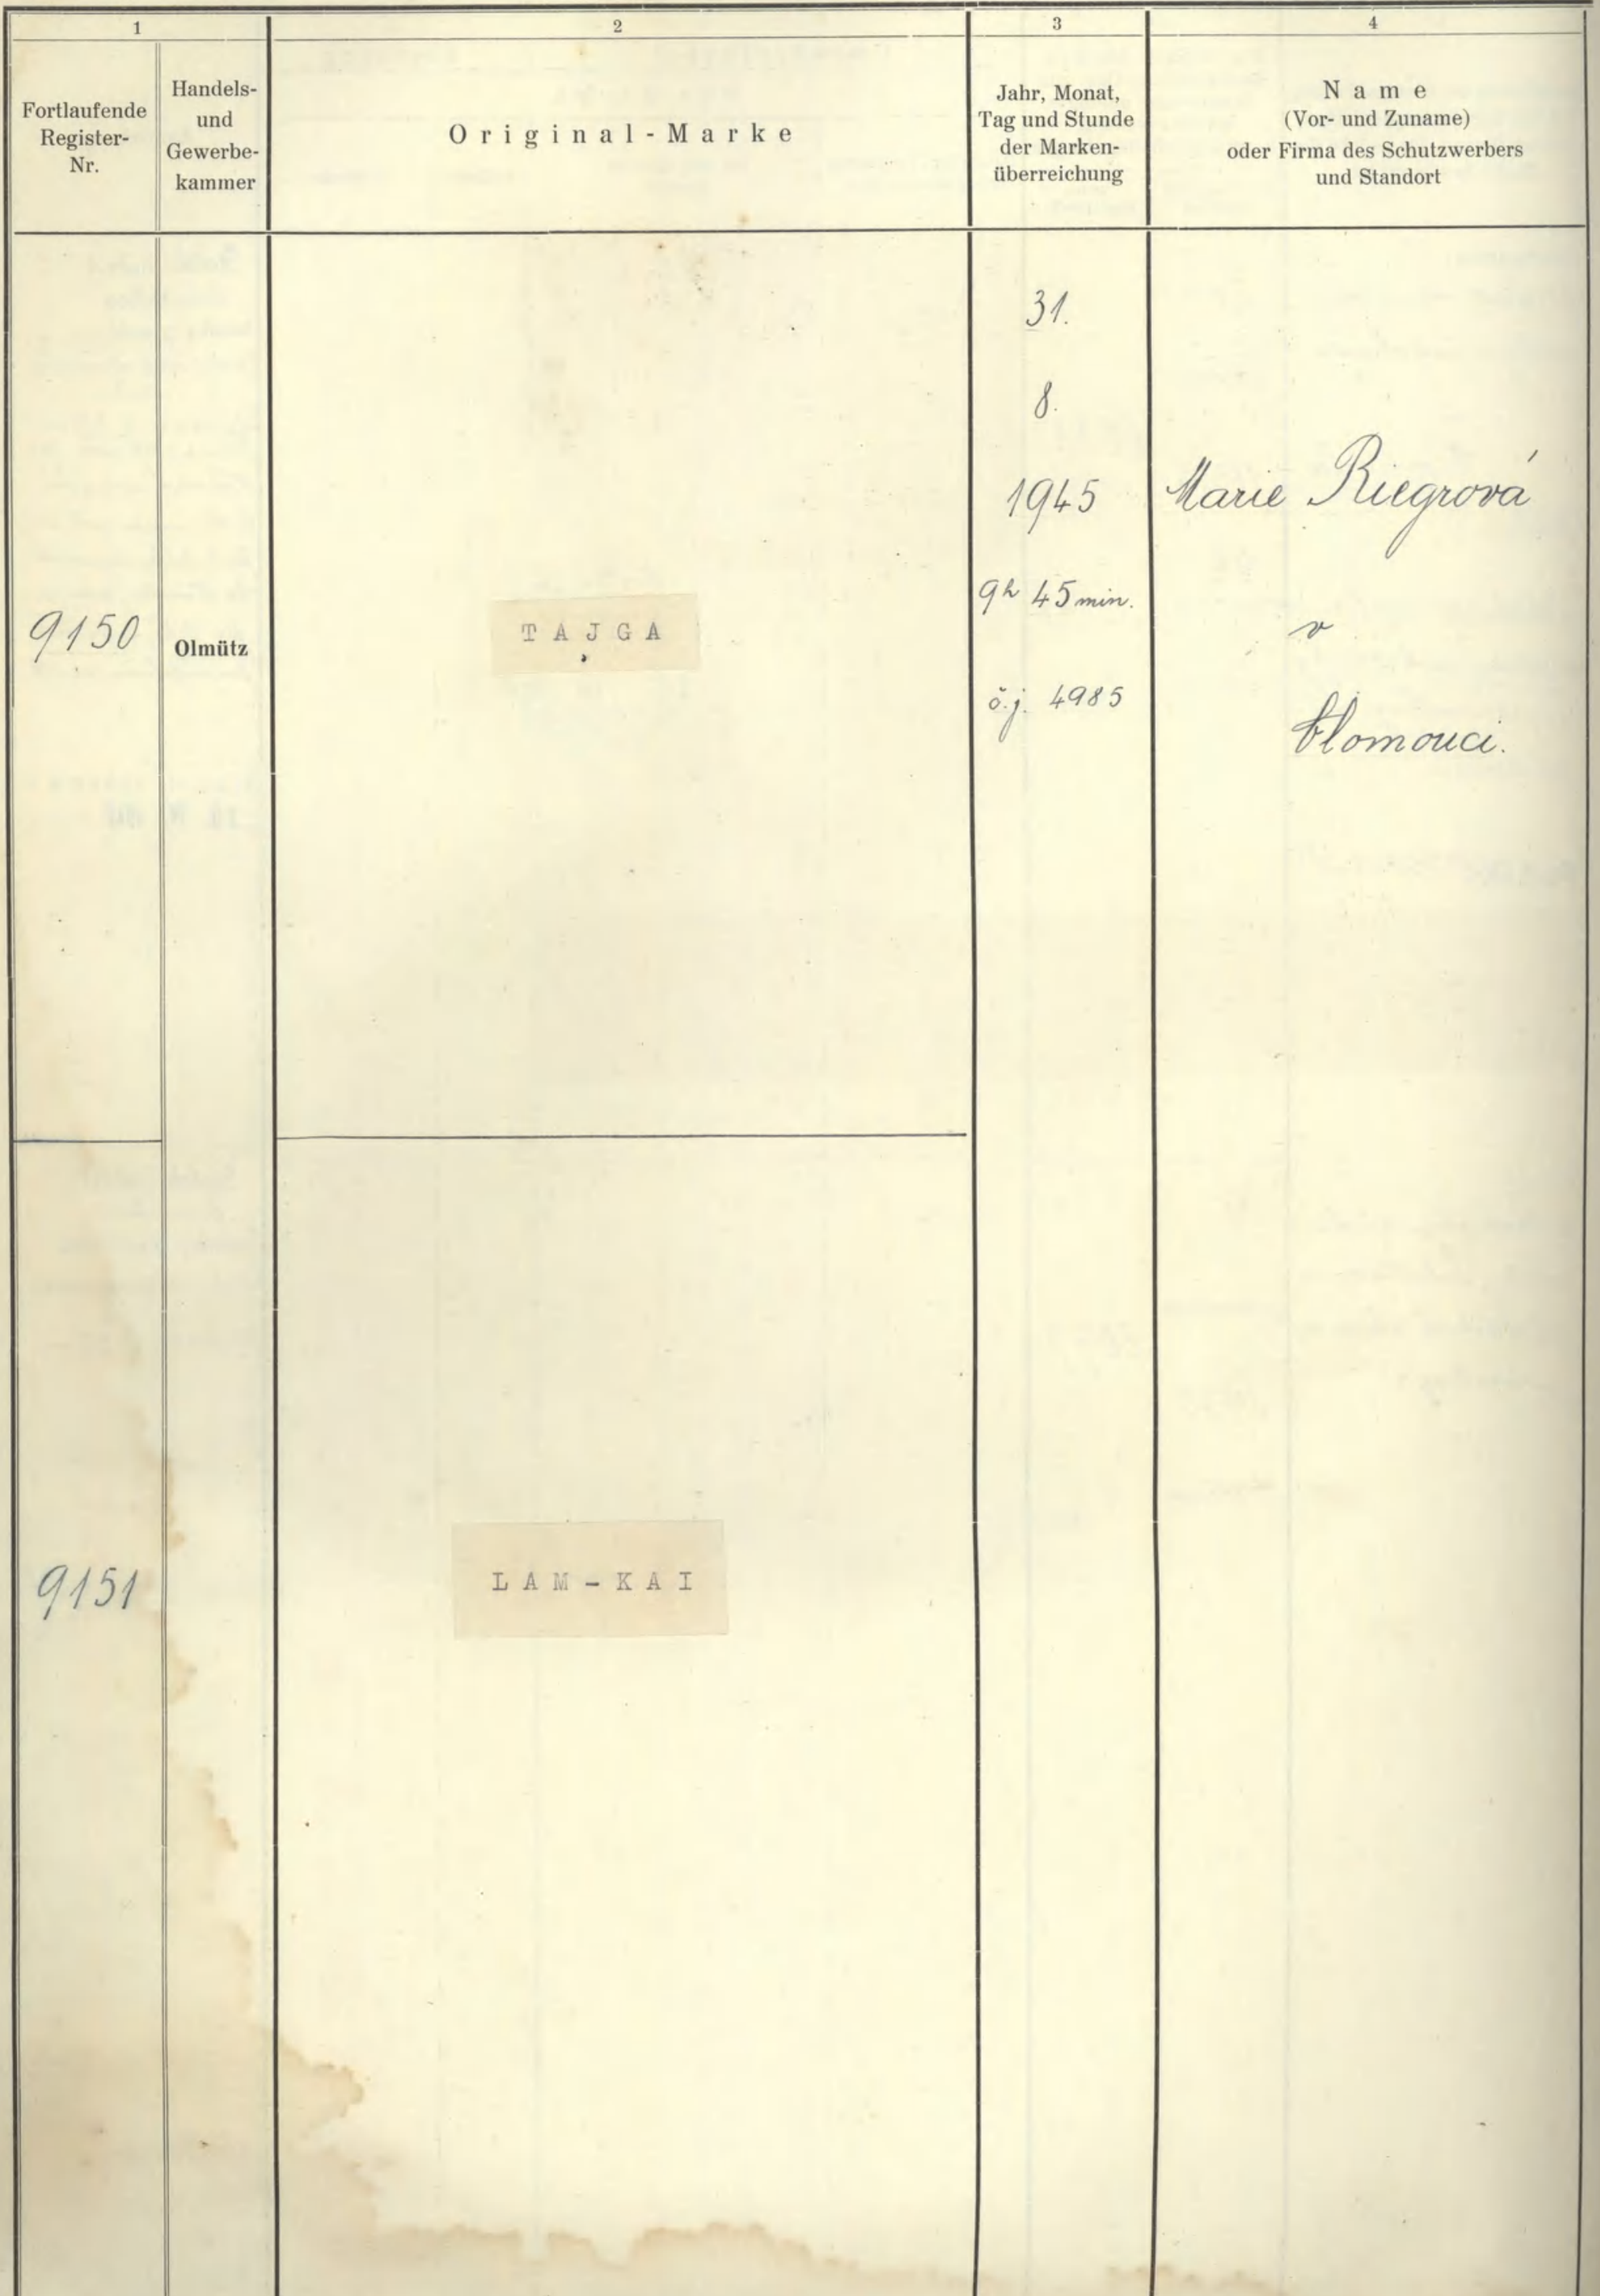 1
2
3
4
Fortlaufende
Register-
Nr.
Handels-
und
Gewerbe-
kammer
Original-Marke
Jahr, Monat,
Tag und Stunde
der Marken-
überreichung
Name
(Vor- und Zuname)
oder Firma des Schutzwerbers
und Standort
9150
Olmütz
TAJGA
31.
8.
1945
9h 45 min.
č.j. 4985
Marie Riegrová
v
Olomouci.
9151
LAM-KAI